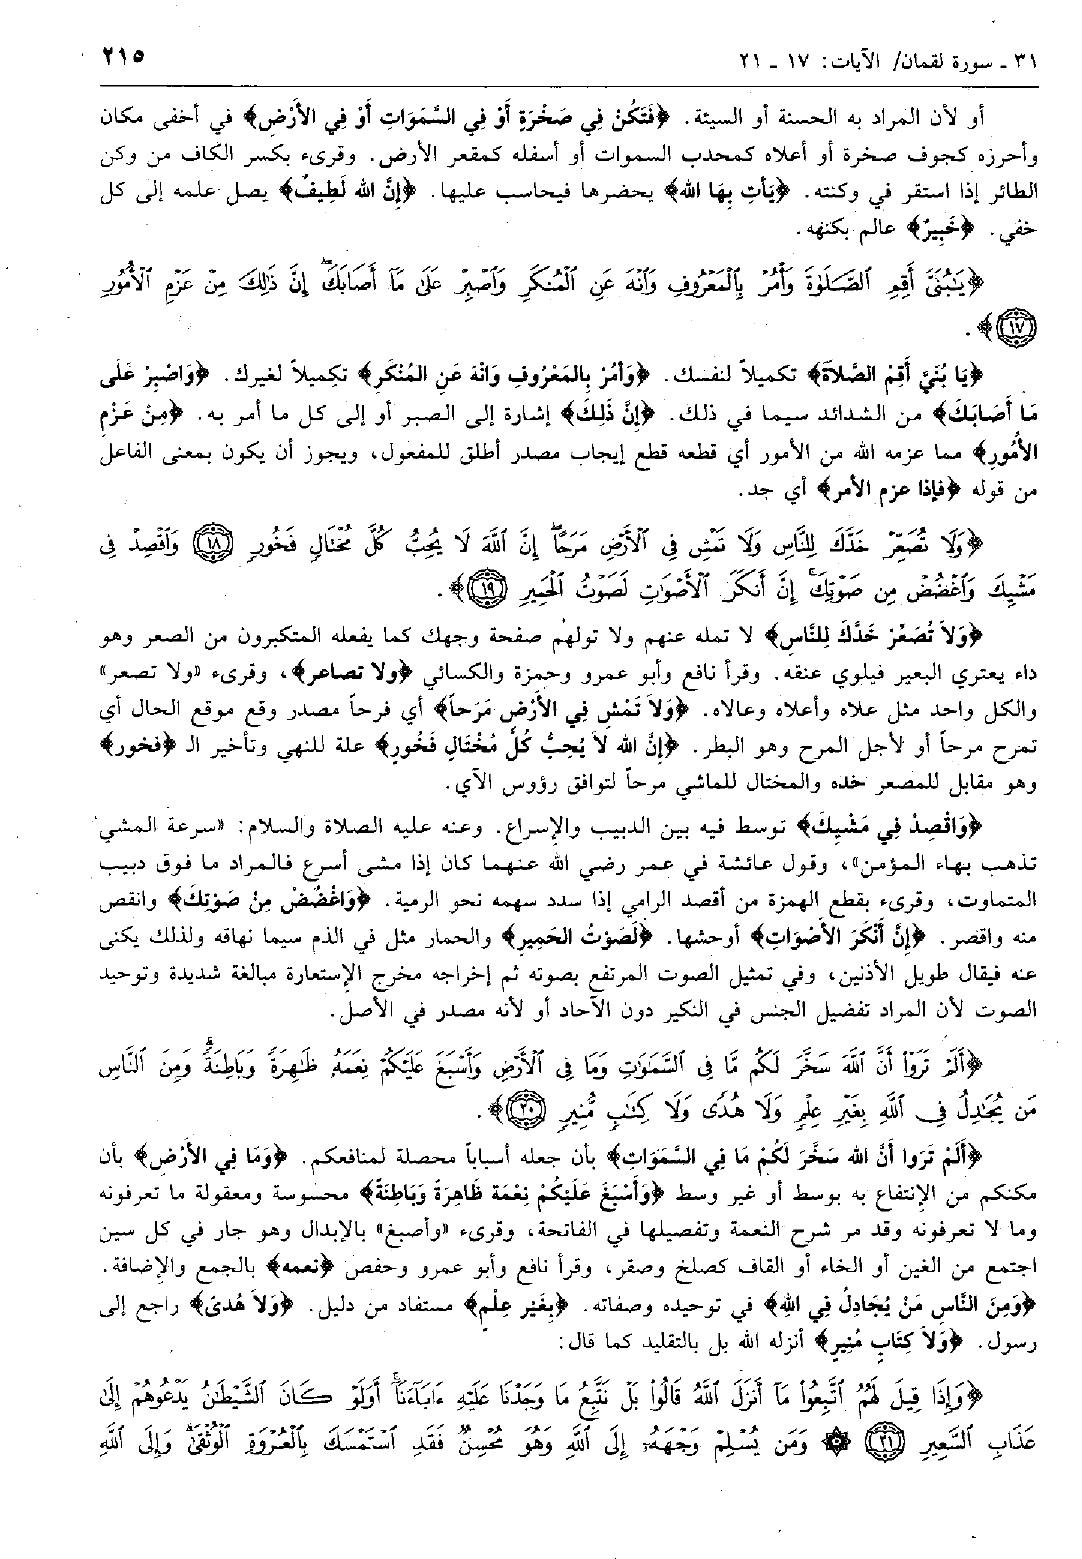 ٣١ ـ سورة لقمان/ الآيات: ١٧ ـ ٢١
٢١٥
أو لأن المراد به الحسنة أو السيئة. ﴿فَتَكُنْ فِي صَخْرَةٍ أَوْ فِي السَّمَوَاتِ أَوْ فِي الأَرْضِ﴾ في أخفى مكان
وأحرزه كجوف صخرة أو أعلاه كمحدب السموات أو أسفله كمقعر الأرض. وقرىء بكسر الكاف من وكن
الطائر إذا استقر في وكنته. ﴿يَأْتِ بِهَا الله﴾ يحضرها فيحاسب عليها. ﴿إِنَّ الله لَطِيفٌ﴾ يصل علمه إلى كل
خفي. ﴿خَبِيرٌ﴾ عالم بكنهه.
﴿يَٰبُنَىَّ أَقِمِ ٱلصَّلَوٰةَ وَأْمُرْ بِٱلْمَعْرُوفِ وَٱنْهَ عَنِ ٱلْمُنكَرِ وَٱصْبِرْ عَلَىٰ مَآ أَصَابَكَ ۖ إِنَّ ذَٰلِكَ مِنْ عَزْمِ ٱلْأُمُورِ
(١٧)﴾.
﴿يَا بُنَيَّ أَقِمْ الصَّلاَةَ﴾ تكميلاً لنفسك. ﴿وَأْمُرْ بِالمَعْرُوفِ وَانْهَ عَنِ المُنْكَرِ﴾ تكميلاً لغيرك. ﴿وَاصْبِرْ عَلَى
مَا أَصَابَكَ﴾ من الشدائد سيما في ذلك. ﴿إِنَّ ذَلِكَ﴾ إشارة إلى الصبر أو إلى كل ما أمر به. ﴿مِنْ عَزْمِ
الأُمُورِ﴾ مما عزمه الله من الأمور أي قطعه قطع إيجاب مصدر أطلق للمفعول، ويجوز أن يكون بمعنى الفاعل
من قوله ﴿فإذا عزم الأمر﴾ أي جد.
﴿وَلَا تُصَعِّرْ خَدَّكَ لِلنَّاسِ وَلَا تَمْشِ فِى ٱلْأَرْضِ مَرَحًا ۖ إِنَّ ٱللَّهَ لَا يُحِبُّ كُلَّ مُخْتَالٍ فَخُورٍ (١٨) وَٱقْصِدْ فِى
مَشْيِكَ وَٱغْضُضْ مِن صَوْتِكَ ۚ إِنَّ أَنكَرَ ٱلْأَصْوَٰتِ لَصَوْتُ ٱلْحَمِيرِ (١٩)﴾.
﴿وَلاَ تُصَعِّرْ خَدَّكَ لِلنَّاسِ﴾ لا تمله عنهم ولا تولهم صفحة وجهك كما يفعله المتكبرون من الصعر وهو
داء يعتري البعير فيلوي عنقه. وقرأ نافع وأبو عمرو وحمزة والكسائي ﴿ولا تصاعر﴾، وقرىء «ولا تصعر»
والكل واحد مثل علاه وأعلاه وعالاه. ﴿وَلاَ تَمْشِ فِي الأَرْضِ مَرَحاً﴾ أي فرحاً مصدر وقع موقع الحال أي
تمرح مرحاً أو لأجل المرح وهو البطر. ﴿إِنَّ الله لاَ يُحِبُّ كُلَّ مُخْتَالٍ فَخُورٍ﴾ علة للنهي وتأخير الـ ﴿فخور﴾
وهو مقابل للمصعر خده والمختال للماشي مرحاً لتوافق رؤوس الآي.
﴿وَاقْصِدْ فِي مَشْيِكَ﴾ توسط فيه بين الدبيب والإسراع. وعنه عليه الصلاة والسلام: «سرعة المشي
تذهب بهاء المؤمن»، وقول عائشة في عمر رضي الله عنهما كان إذا مشى أسرع فالمراد ما فوق دبيب
المتماوت، وقرىء بقطع الهمزة من أقصد الرامي إذا سدد سهمه نحو الرمية. ﴿وَاغْضُضْ مِنْ صَوْتِكَ﴾ وانقص
منه واقصر. ﴿إِنَّ أَنْكَرَ الأَصْوَاتِ﴾ أوحشها. ﴿لَصَوْتُ الحَمِيرِ﴾ والحمار مثل في الذم سيما نهاقه ولذلك يكنى
عنه فيقال طويل الأذنين، وفي تمثيل الصوت المرتفع بصوته ثم إخراجه مخرج الإستعارة مبالغة شديدة وتوحيد
الصوت لأن المراد تفضيل الجنس في النكير دون الآحاد أو لأنه مصدر في الأصل.
﴿أَلَمْ تَرَوْا۟ أَنَّ ٱللَّهَ سَخَّرَ لَكُم مَّا فِى ٱلسَّمَٰوَٰتِ وَمَا فِى ٱلْأَرْضِ وَأَسْبَغَ عَلَيْكُمْ نِعَمَهُۥ ظَٰهِرَةً وَبَاطِنَةً ۗ وَمِنَ ٱلنَّاسِ
مَن يُجَٰدِلُ فِى ٱللَّهِ بِغَيْرِ عِلْمٍ وَلَا هُدًى وَلَا كِتَٰبٍ مُّنِيرٍ (٢٠)﴾.
﴿أَلَمْ تَرَوا أَنَّ الله سَخَّرَ لَكُمْ مَا فِي السَّمَوَاتِ﴾ بأن جعله أسباباً محصلة لمنافعكم. ﴿وَمَا فِي الأَرْضِ﴾ بأن
مكنكم من الإنتفاع به بوسط أو غير وسط ﴿وَأَسْبَغَ عَلَيْكُمْ نِعْمَة ظَاهِرَةً وَبَاطِنَةً﴾ محسوسة ومعقولة ما تعرفونه
وما لا تعرفونه وقد مر شرح النعمة وتفصيلها في الفاتحة، وقرىء «وأصبغ» بالإبدال وهو جار في كل سين
اجتمع من الغين أو الخاء أو القاف كصلخ وصقر، وقرأ نافع وأبو عمرو وحفص ﴿نعمه﴾ بالجمع والإضافة.
﴿وَمِنَ النَّاسِ مَنْ يُجَادِلُ فِي الله﴾ في توحيده وصفاته. ﴿بِغَيْرِ عِلْمٍ﴾ مستفاد من دليل. ﴿وَلاَ هُدىً﴾ راجع إلى
رسول. ﴿وَلاَ كِتَابٍ مُنِيرٍ﴾ أنزله الله بل بالتقليد كما قال:
﴿وَإِذَا قِيلَ لَهُمُ ٱتَّبِعُوا۟ مَآ أَنزَلَ ٱللَّهُ قَالُوا۟ بَلْ نَتَّبِعُ مَا وَجَدْنَا عَلَيْهِ ءَابَآءَنَآ ۚ أَوَلَوْ كَانَ ٱلشَّيْطَٰنُ يَدْعُوهُمْ إِلَىٰ
عَذَابِ ٱلسَّعِيرِ (٢١) ۞ وَمَن يُسْلِمْ وَجْهَهُۥٓ إِلَى ٱللَّهِ وَهُوَ مُحْسِنٌ فَقَدِ ٱسْتَمْسَكَ بِٱلْعُرْوَةِ ٱلْوُثْقَىٰ ۗ وَإِلَى ٱللَّهِ